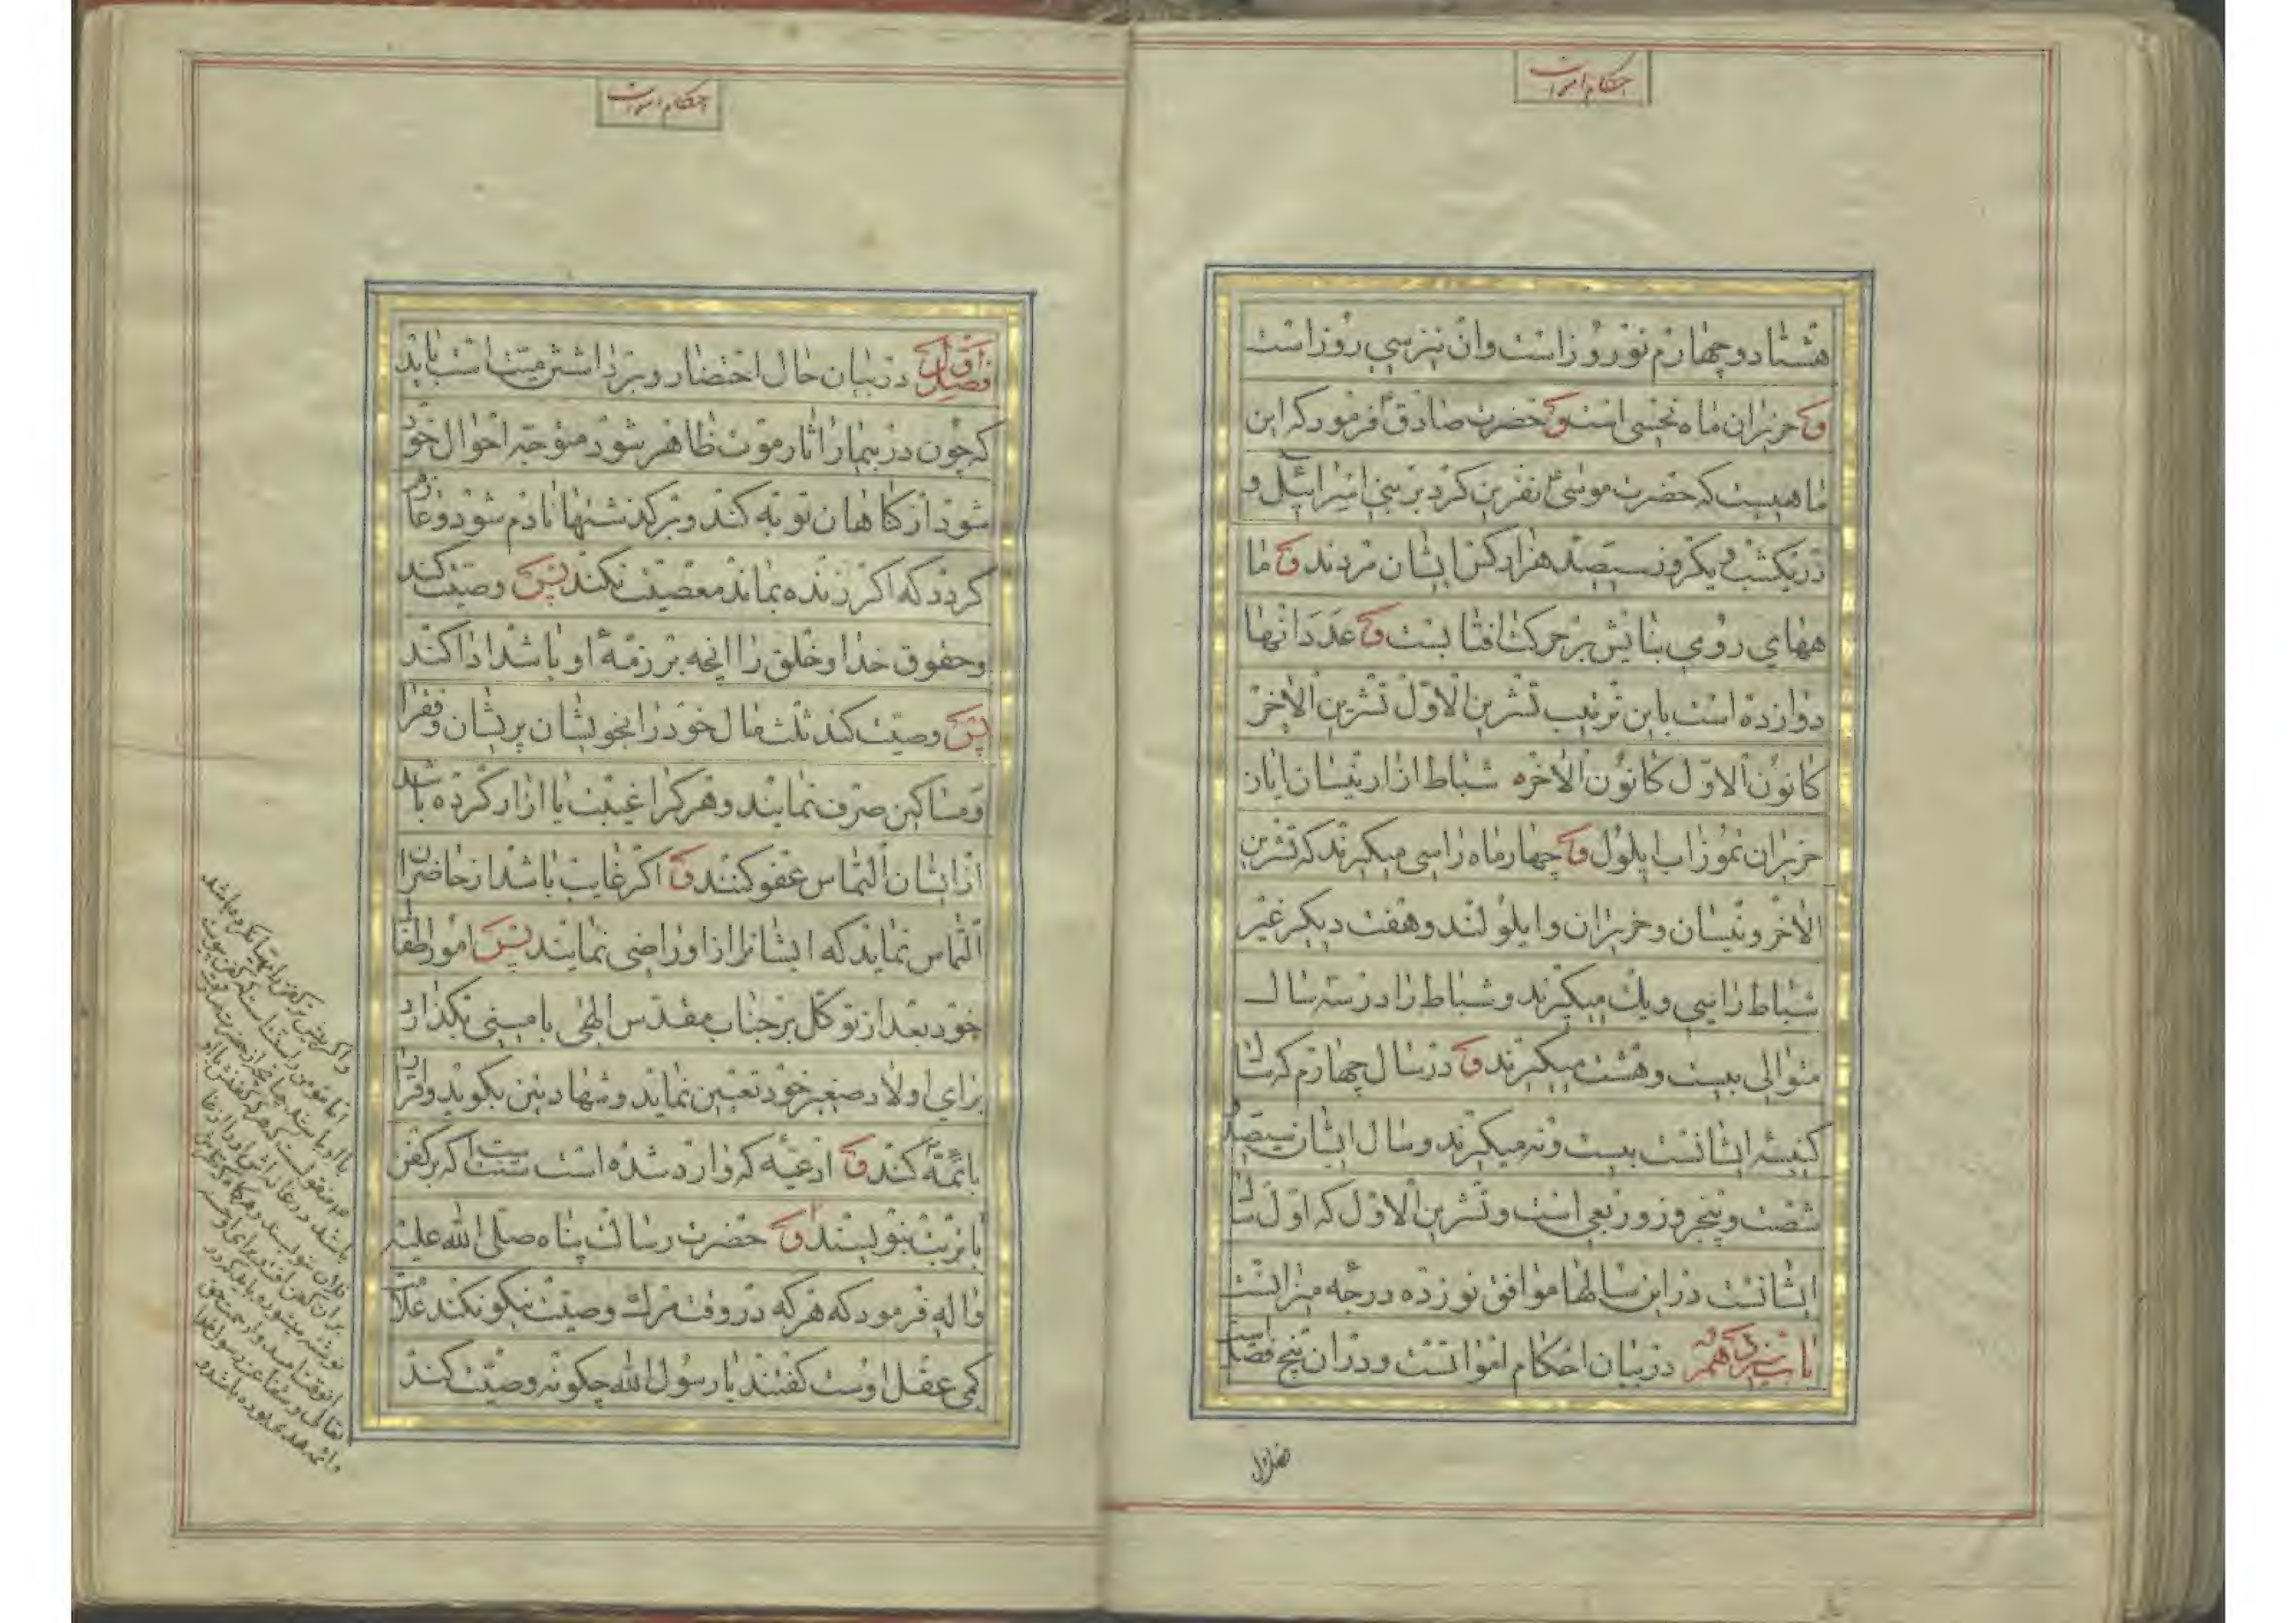 احکام اموات
هشتاد و چهارم نوروز است و ان نیز سی روز است
و حزیران ماه نحسی است و حضرت صادق ع فرمود که این
ماهیست که حضرت موسی ع نفرین کرد بر بنی اسرائیل و
در یکشب و یکروز سیصد هزار کس ایشان مردند و ما
ههای رومی بنایش بر حرکت افتابست و عدد انها
دوازده است باین ترتیب تشرین الاول تشرین الاخر
کانون الاول کانون الاخره شباط اذار نیسان ایار
حزیران تموز اب ایلول و چهار ماه را سی میکیرند که تشرین
الاخر و نیسان و حزیران و ایلولند و هفت دیکر غیر
شباط را سی و یک میکیرند و شباط را در سه سال
متوالی بیست و هشت میکیرند و در سال چهارم که سال
کبیسه ایشانست بیست و نه میکیرند و سال ایشان سیصد و
شصت و پنجروز و ربعی است و تشرین الاول که اول سال
ایشانست در این سالها موافق نوزده درجه میزانست
باب در بیان احکام امواتست و در ان پنج فصل است
فصل اول
احکام اموات
فصل اول در بیان حال احتضار و برداشتن میت است باید
که چون در بیمار اثار موت ظاهر شود متوجه احوال خود
شود از کناهان توبه کند و بر کذشتها نادم شود و عازم
کردد که اکر زنده بماند معصیت نکند پس وصیت کند
و حقوق خدا و خلق را انچه بر زمهٔ او باشد ادا کند
پس وصیت کند ثلث مال خود را بخویشان پریشان و فقرا
و مساکین صرف نمایند و هر کرا غیبت یا ازار کرده باشد
از ایشان التماس عفو کنند و اکر غایب باشد از حاضران
التماس نماید که ایشانرا از او راضی نمایند پس امور اطفال
خود بعد از توکل بر جناب مقدس الهی با مینی بکذارد
برای اولاد صغیر خود تعیین نماید و شهادتین بکوید و اقرار
بائمه کند و ادعیه که وارد شده است سنت است اکر بر کفن
با تربت بنویسند و حضرت رسالت پناه صلی الله علیه
و اله فرمود که هر که در وقت مرك وصیت نیکو نکند علامت
کمی عقل اوست کفتند یا رسول الله چکونه وصیت کند